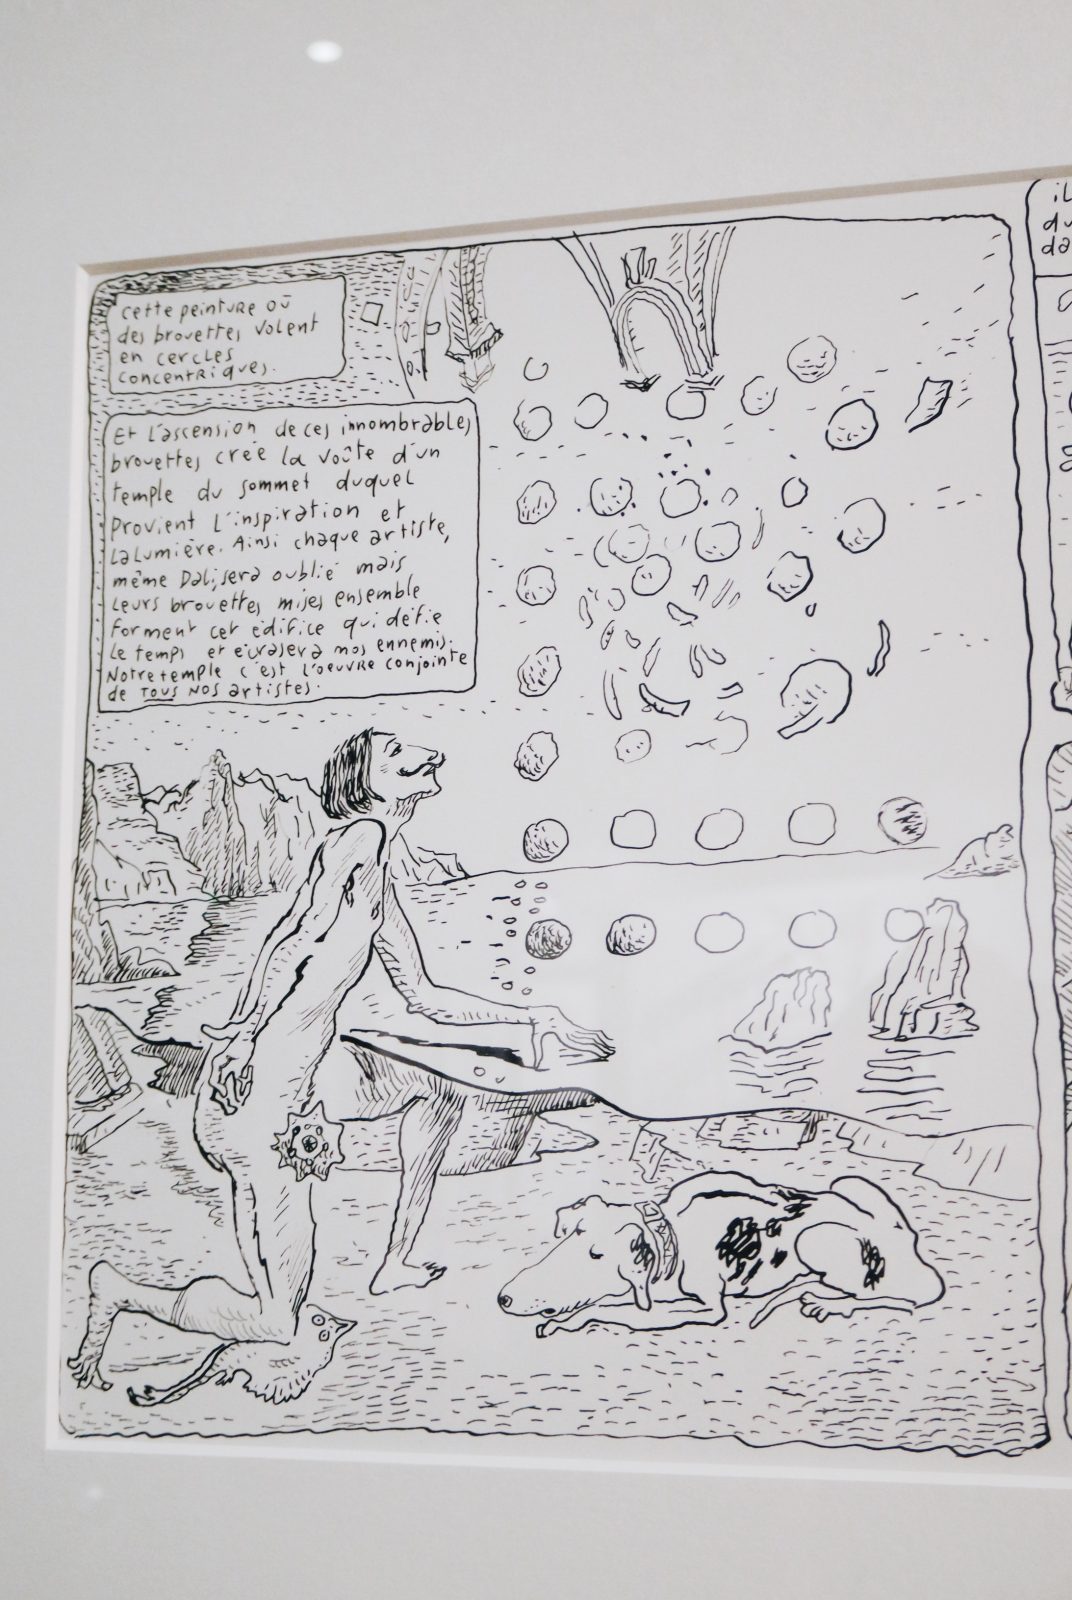 cette peinture où
des brouettes volent
en cercles
concentriques.
Et l'ascension de ces innombrables
brouettes crée la voûte d'un
temple du sommet duquel
provient l'inspiration et
la lumière. Ainsi chaque artiste,
même Dali, sera oublié mais
leurs brouettes mises ensemble
forment cet édifice qui défie
le temps et écrasera nos ennemis.
Notre temple c'est l'oeuvre conjointe
de TOUS nos artistes.
iL
du
da